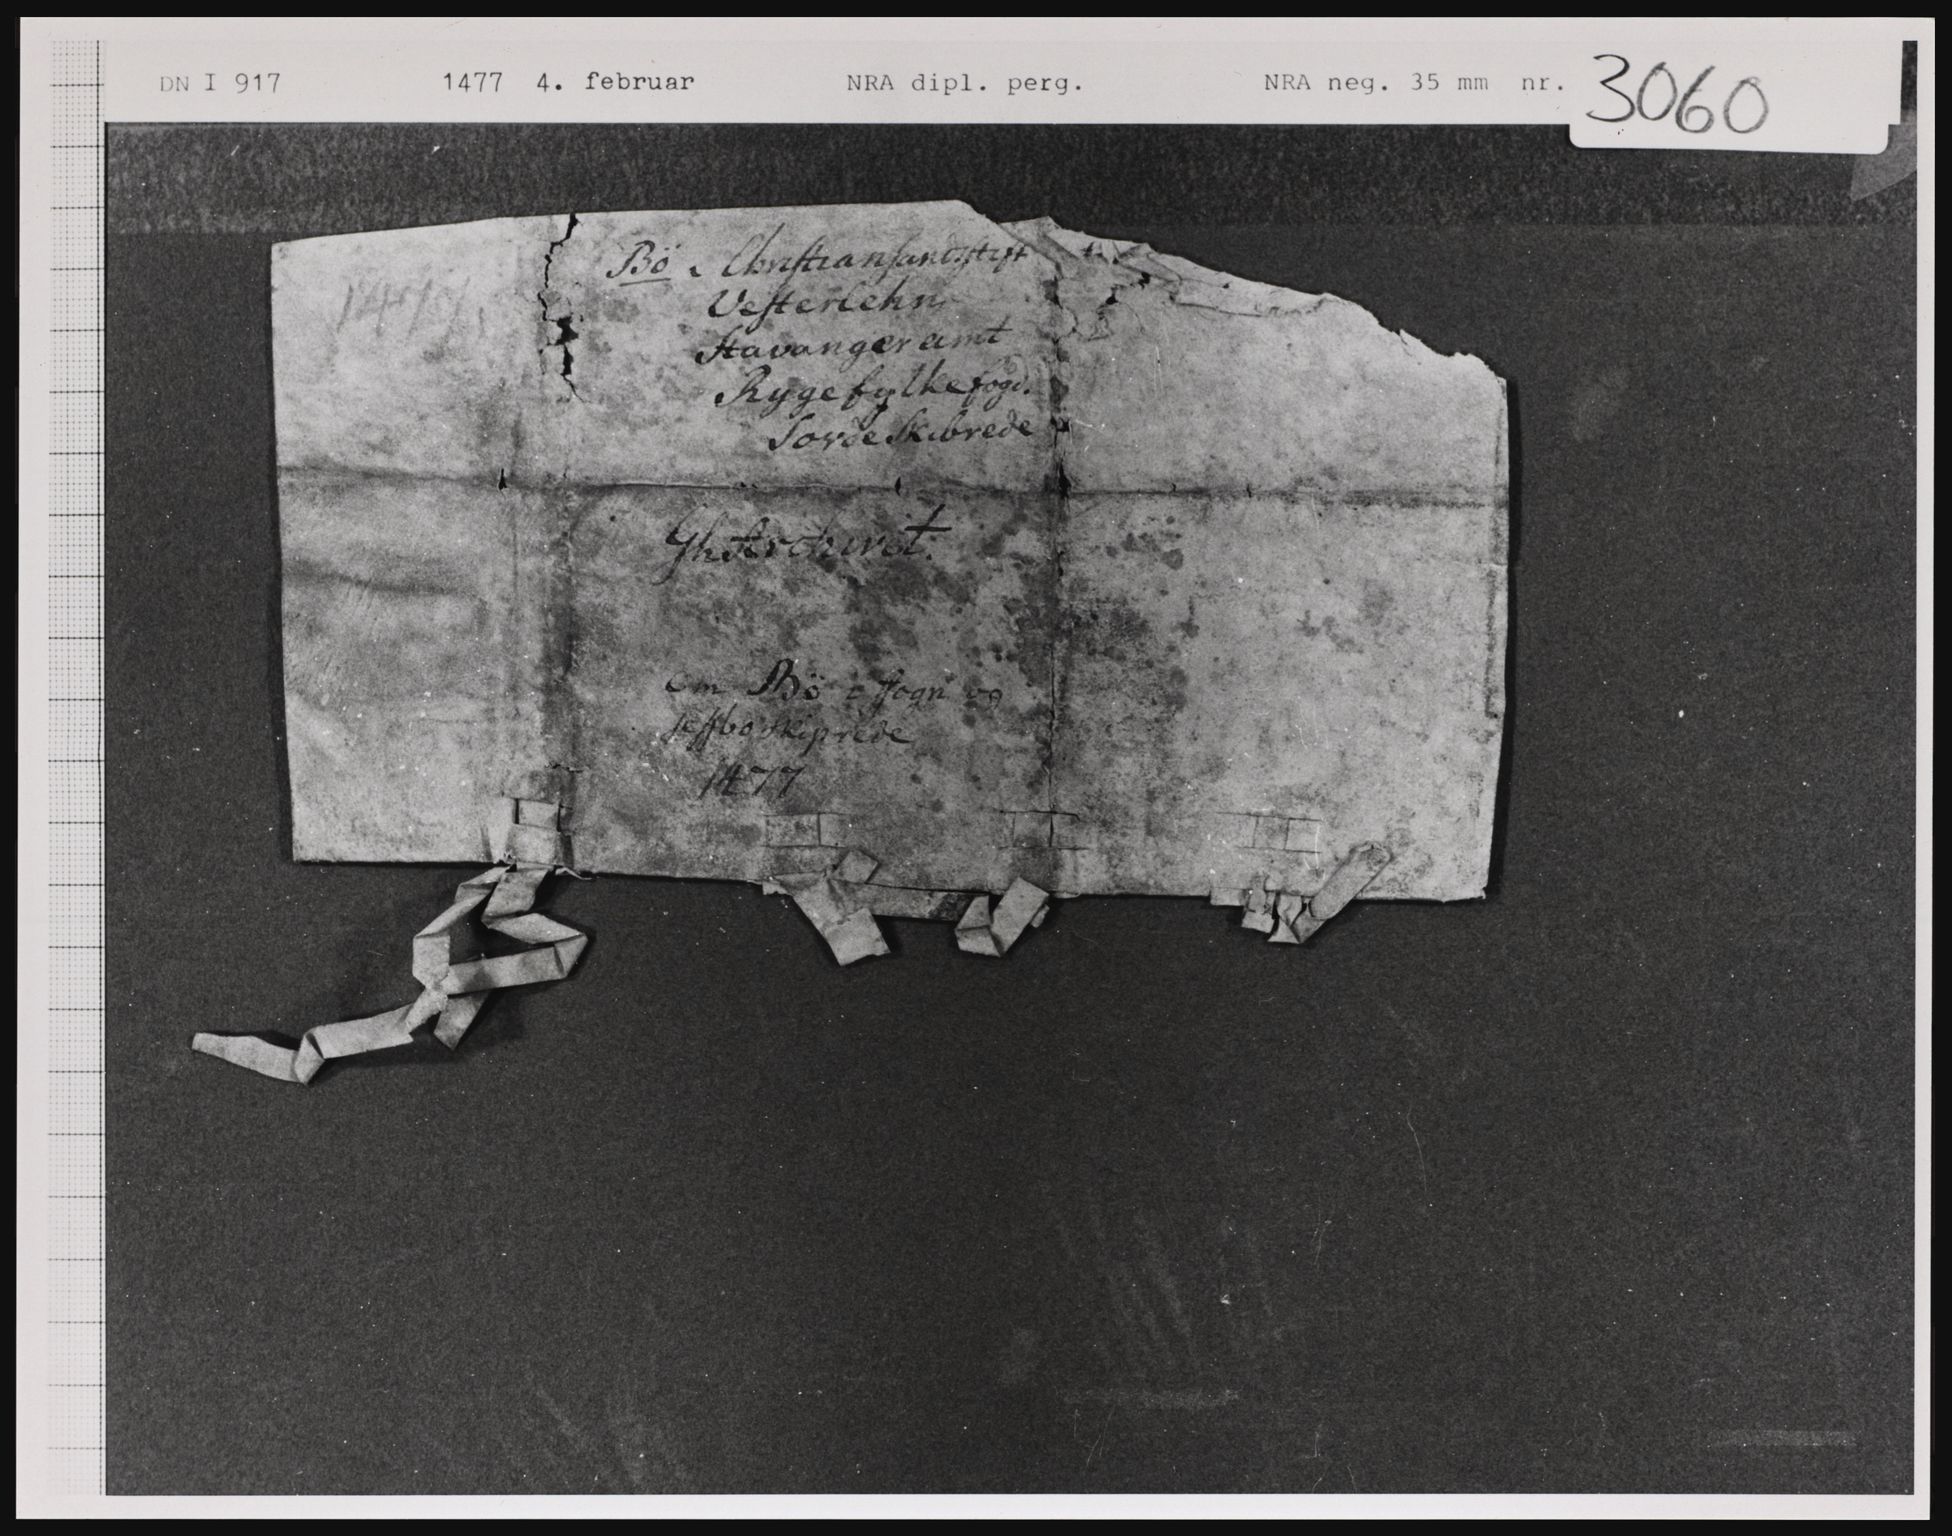 DN I 917 1477 4. februar NRA dipl. perg. NRA neg. 35 mm nr. 3060
Bö i Christiansandsstift
Vesterlehn
Stavanger amt
Rygefylkefogd.
Sorde Skibrede
1477
om Bö i sogn og
skiprede
1477